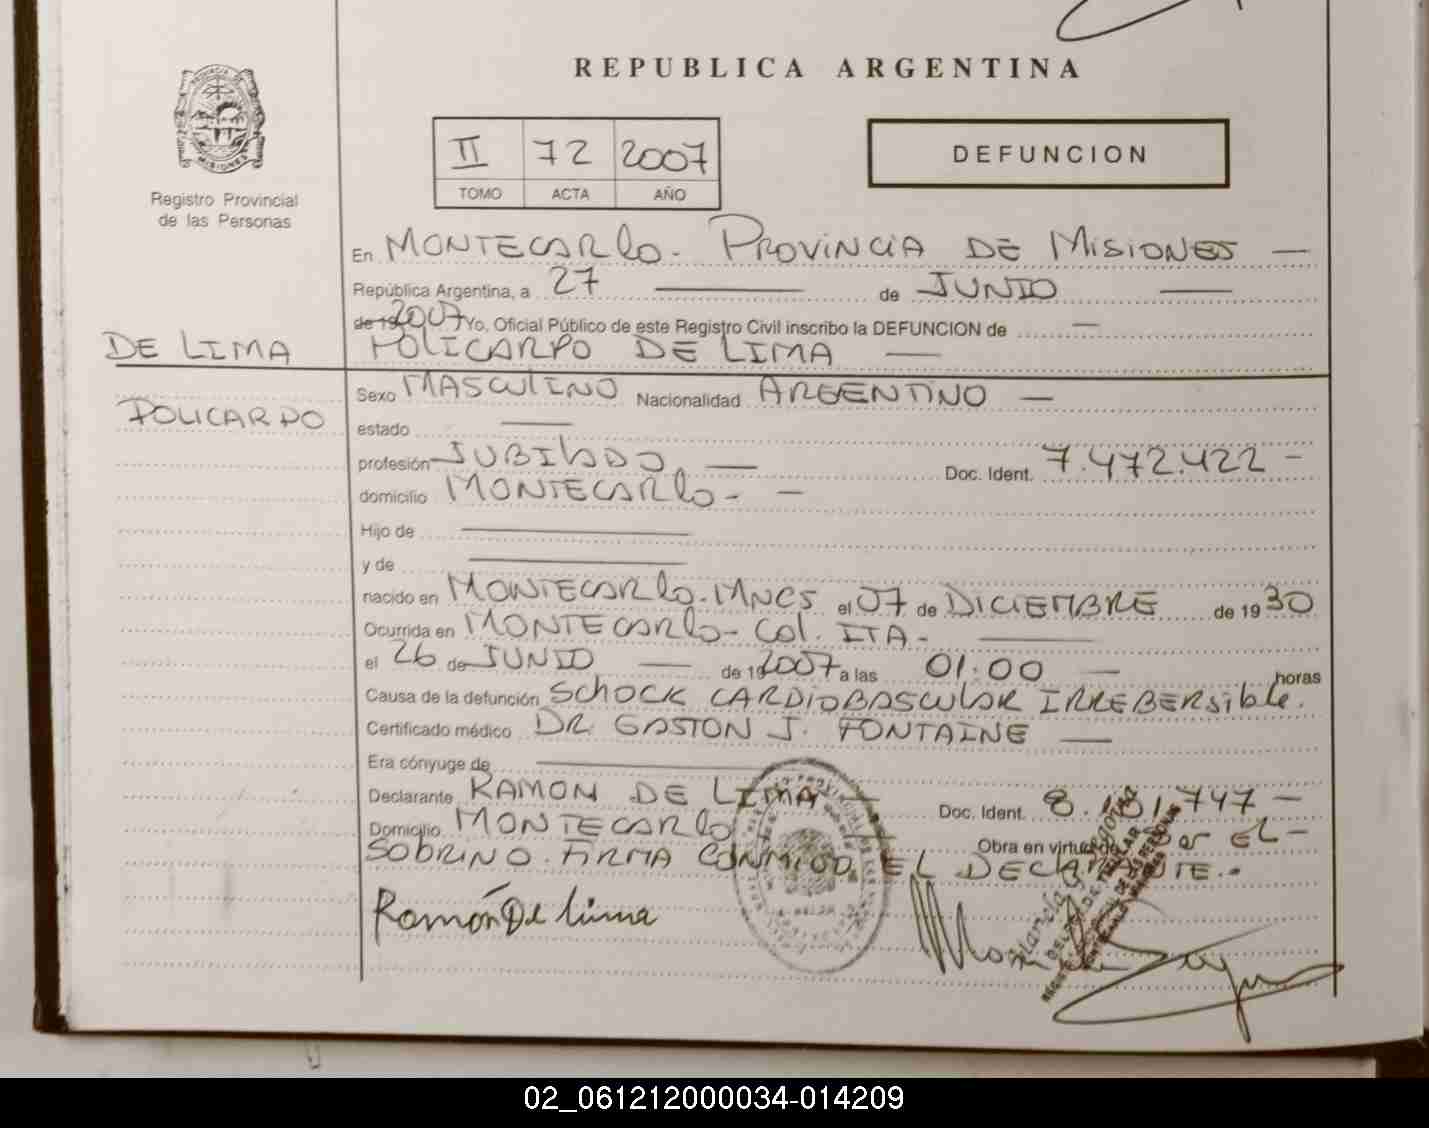 REPUBLICA ARGENTINA
PROVINCIA DE MISIONES
Registro Provincial
de las Personas
II 72 2007
TOMO ACTA AÑO
DEFUNCION
En MONTECARlo - PROVINCIA DE MISIONES —
República Argentina, a 27 — de JUNIO —
de 19 2007 Yo, Oficial Público de este Registro Civil inscribo la DEFUNCION de —
DE LIMA
POLICARPO DE LIMA —
POLICARPO
Sexo MASCULINO Nacionalidad ARGENTINO —
estado —
profesión JUBILADO — Doc. Ident. 7.472.422 -
domicilio MONTECARlo - —
Hijo de —
y de —
nacido en MONTECARlo - MNES el 07 de DICIEMBRE de 19 30
Ocurrida en MONTECARlo - Col. ITA - —
el 26 de JUNIO — de 19 2007 a las 01:00 — horas
Causa de la defunción SCHOCK CARDIOBASCULAR IRREBERSIBLE.
Certificado médico DR. GASTON J. FONTAINE —
Era cónyuge de —
Declarante RAMON DE LIMA — Doc. Ident. 8.181.747 -
Domicilio MONTECARlo Obra en virtud de SER EL -
SOBRINO. FIRMA CONMIGO EL DECLARANTE. -
Ramón De Lima
02_061212000034-014209